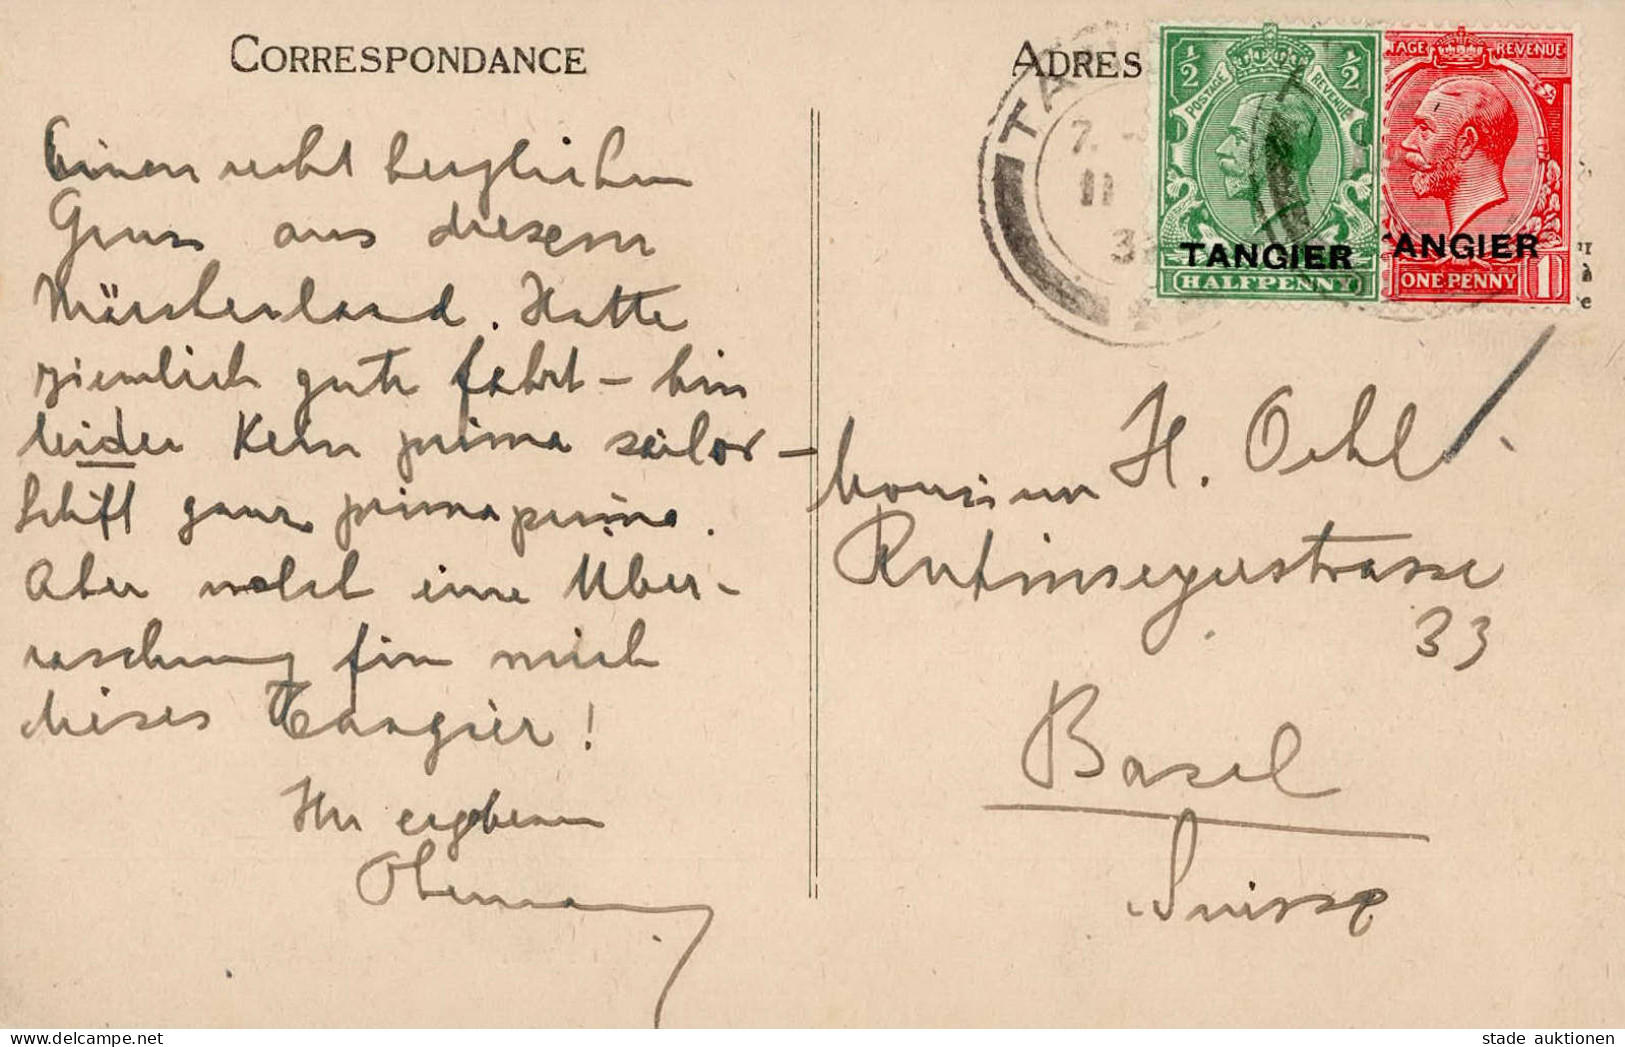 CORRESPONDANCE
Einen recht herzlichen
Gruss aus diesem
Märchenland. Hatte
ziemlich gute fahrt – bin
leider kein prima sailor –
schiff ganz prima prima.
Aber wohl eine Über-
raschung für mich
dieses Tangier!
Ihr ergebener
ADRES
TAN
7.
11
3
1/2 1/2
POSTAGE REVENUE
TANGIER
HALFPENNY
TAGE REVENUE
ANGIER
ONE PENNY 1
Monsieur H. Oehl
Rütimeyerstrasse
33
Basel
Suisse
delcampe.net
stade auktionen